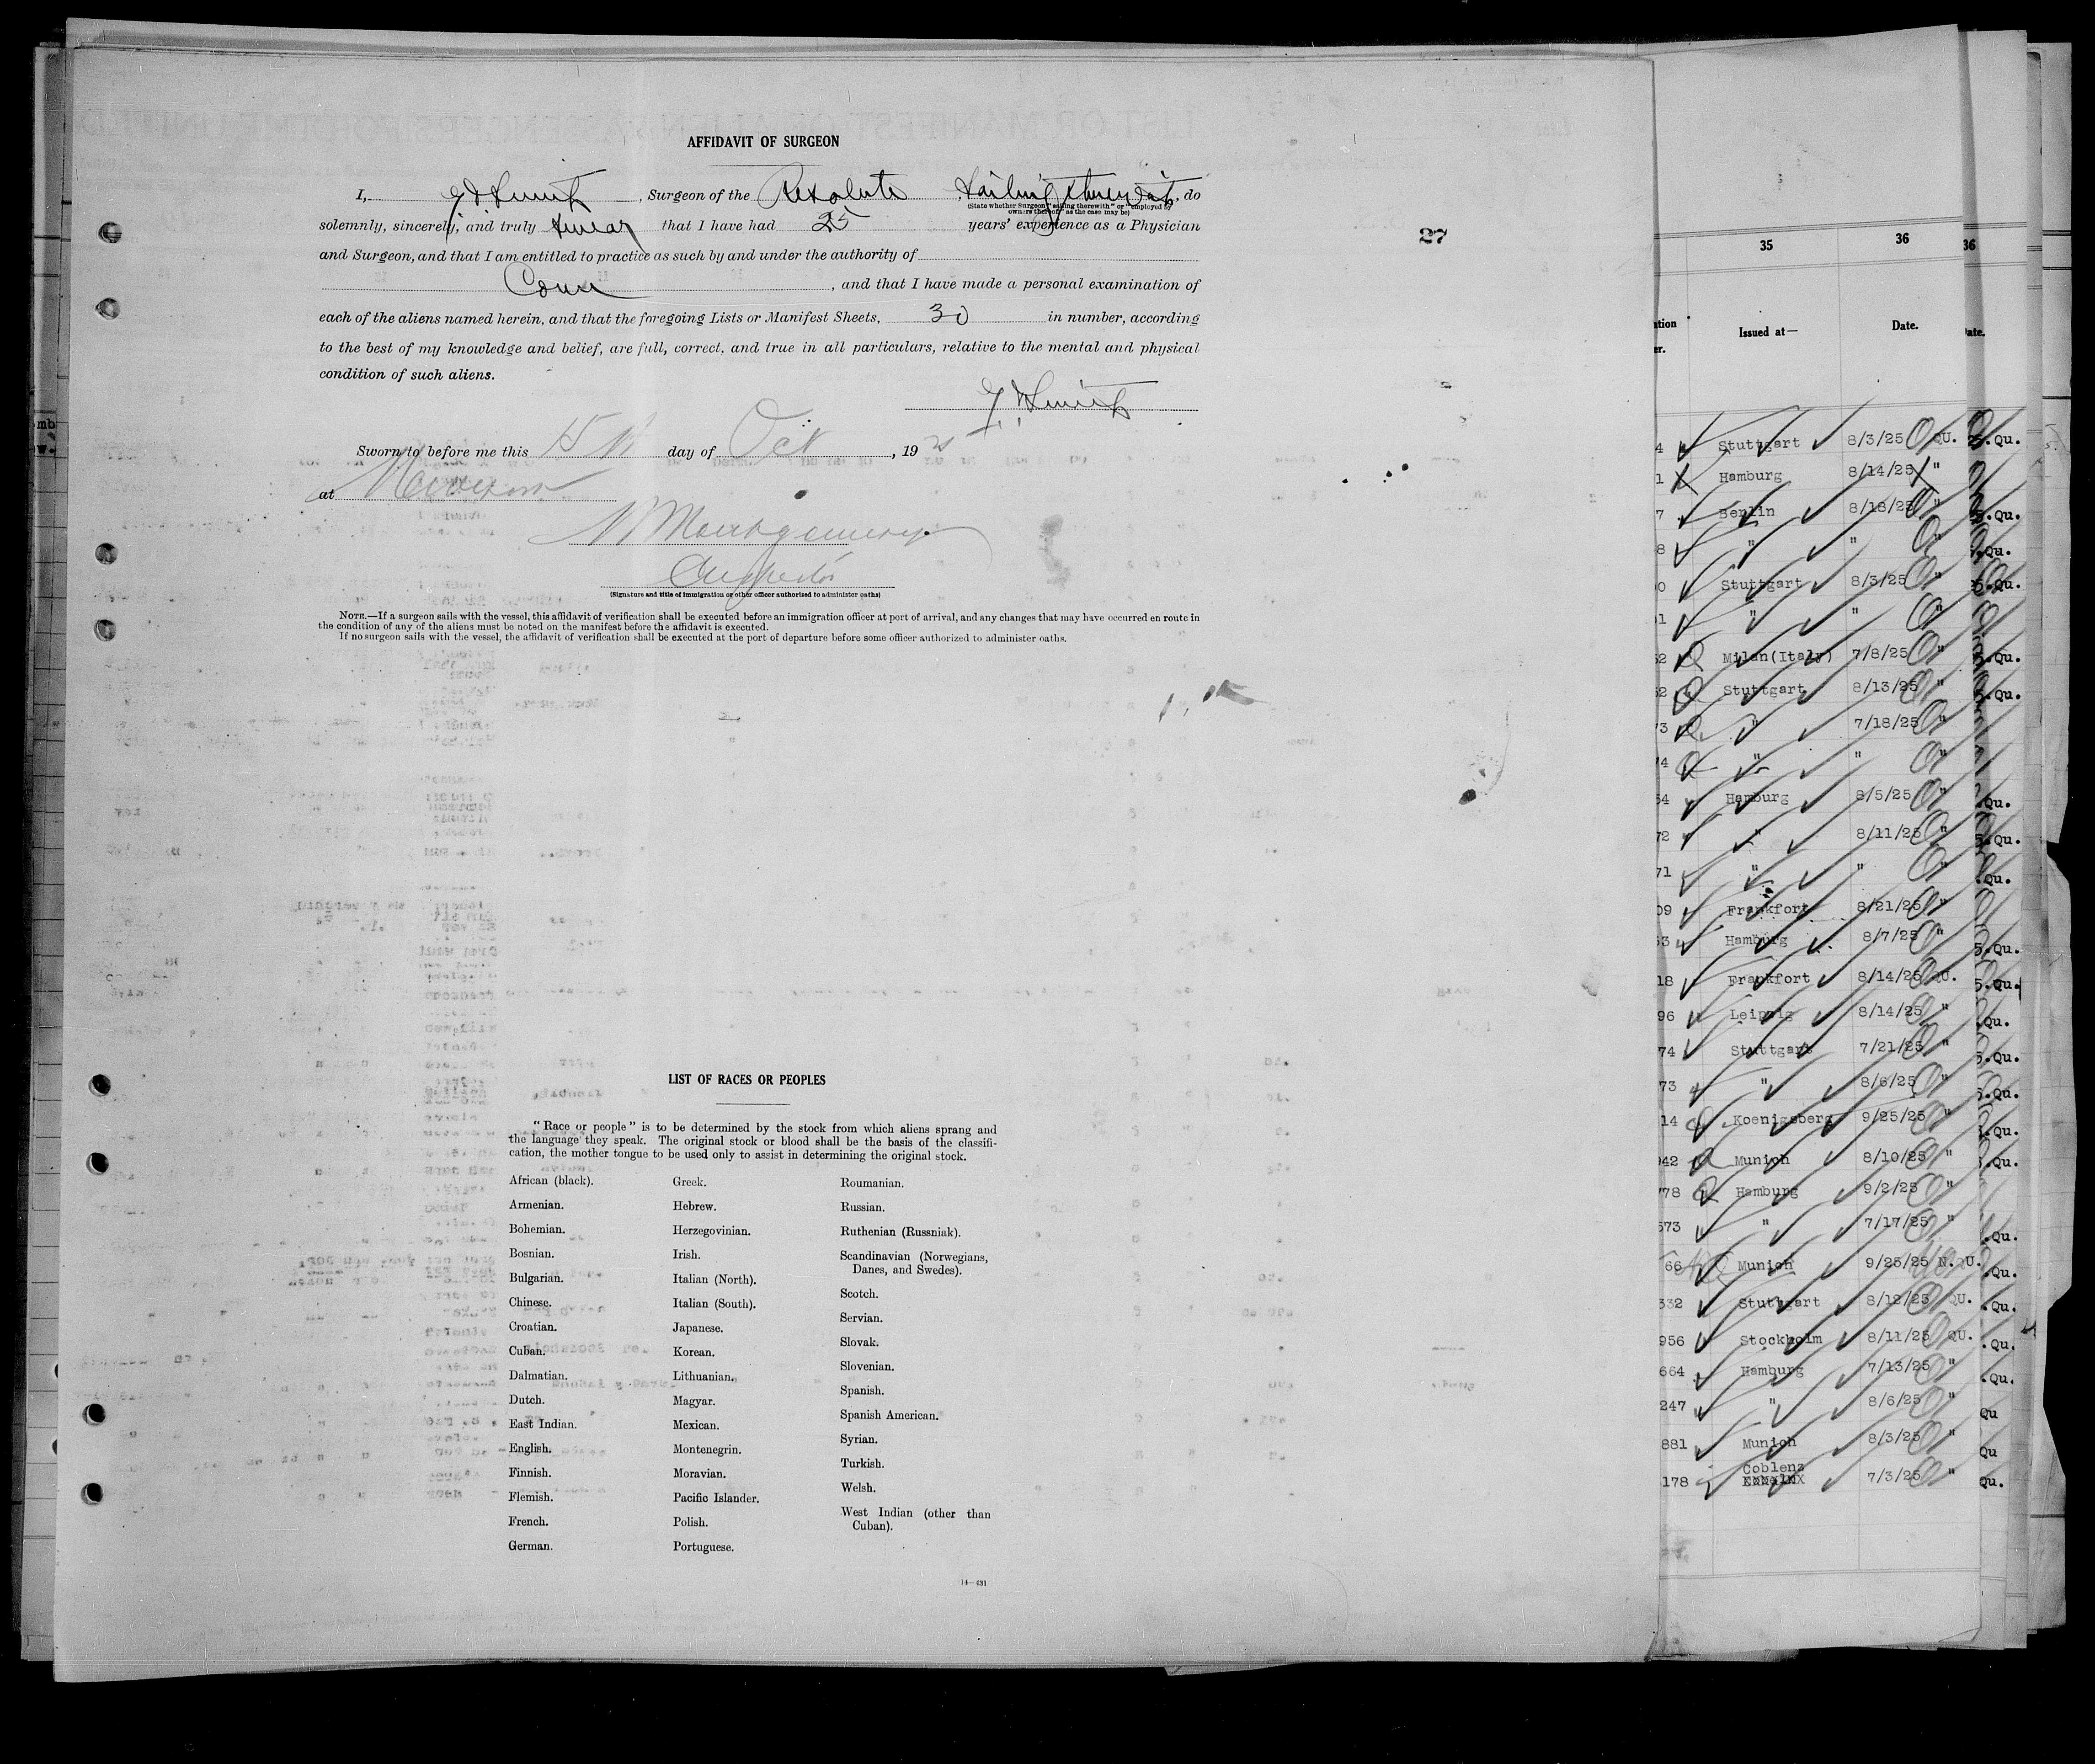 AFFIDAVIT OF SURGEON
I, , Surgeon of the Resolute , Sailing therewith, do
(State whether Surgeon "sailing therewith" or "employed by
owners thereof" as the case may be)
solemnly, sincerely, and truly swear that I have had 25 years' experience as a Physician
27
and Surgeon, and that I am entitled to practice as such by and under the authority of
Conn , and that I have made a personal examination of
each of the aliens named herein, and that the foregoing Lists or Manifest Sheets, 30 in number, according
to the best of my knowledge and belief, are full, correct, and true in all particulars, relative to the mental and physical
condition of such aliens.
Sworn to before me this 15 day of Oct , 19
at New York
Montgomery
Inspector
(Signature and title of immigration or other officer authorized to administer oaths)
NOTE.—If a surgeon sails with the vessel, this affidavit of verification shall be executed before an immigration officer at port of arrival, and any changes that may have occurred en route in
the condition of any of the aliens must be noted on the manifest before the affidavit is executed.
If no surgeon sails with the vessel, the affidavit of verification shall be executed at the port of departure before some officer authorized to administer oaths.
LIST OF RACES OR PEOPLES
"Race or people" is to be determined by the stock from which aliens sprang and
the language they speak. The original stock or blood shall be the basis of the classifi-
cation, the mother tongue to be used only to assist in determining the original stock.
African (black).
Armenian.
Bohemian.
Bosnian.
Bulgarian.
Chinese.
Croatian.
Cuban.
Dalmatian.
Dutch.
East Indian.
English.
Finnish.
Flemish.
French.
German.
Greek.
Hebrew.
Herzegovinian.
Irish.
Italian (North).
Italian (South).
Japanese.
Korean.
Lithuanian.
Magyar.
Mexican.
Montenegrin.
Moravian.
Pacific Islander.
Polish.
Portuguese.
Roumanian.
Russian.
Ruthenian (Russniak).
Scandinavian (Norwegians,
Danes, and Swedes).
Scotch.
Servian.
Slovak.
Slovenian.
Spanish.
Spanish American.
Syrian.
Turkish.
Welsh.
West Indian (other than
Cuban).
14—431
35 36 36
Issued at— Date.
4 Stuttgart 8/3/25 QU. Qu.
1 Hamburg 8/14/25 "
7 Berlin 8/18/25 " Qu.
8 " " " Qu.
0 Stuttgart 8/3/25 " Qu.
1 " " "
52 Milan(Italy) 7/8/25 " Qu.
52 Stuttgart 8/13/25 " Qu.
73 " 7/18/25 "
74 " " "
54 Hamburg 8/5/25 " Qu.
72 " 8/11/25 " Qu.
71 " " " Qu.
09 Frankfort 8/21/25 "
53 Hamburg 8/7/25 " 5.Qu.
18 Frankfort 8/14/25 QU. 5.Qu.
96 Leipzig 8/14/25 " Qu.
74 Stuttgart 7/21/25 " 5.Qu.
73 " 8/6/25 " 5.Qu.
14 Koenigsberg 9/25/25 " Qu.
942 Munich 8/10/25 " Qu.
778 Hamburg 9/2/25 "
573 " 7/17/25 " Qu.
66 Munich 9/25/25 N.QU. Qu.
332 Stuttgart 8/12/25 QU. Qu.
956 Stockholm 8/11/25 QU. Qu.
664 Hamburg 7/13/25 " Qu.
247 " 8/6/25 " Qu
881 Munich 8/3/25 " Qu
178 Coblenz 7/3/25 " Qu.